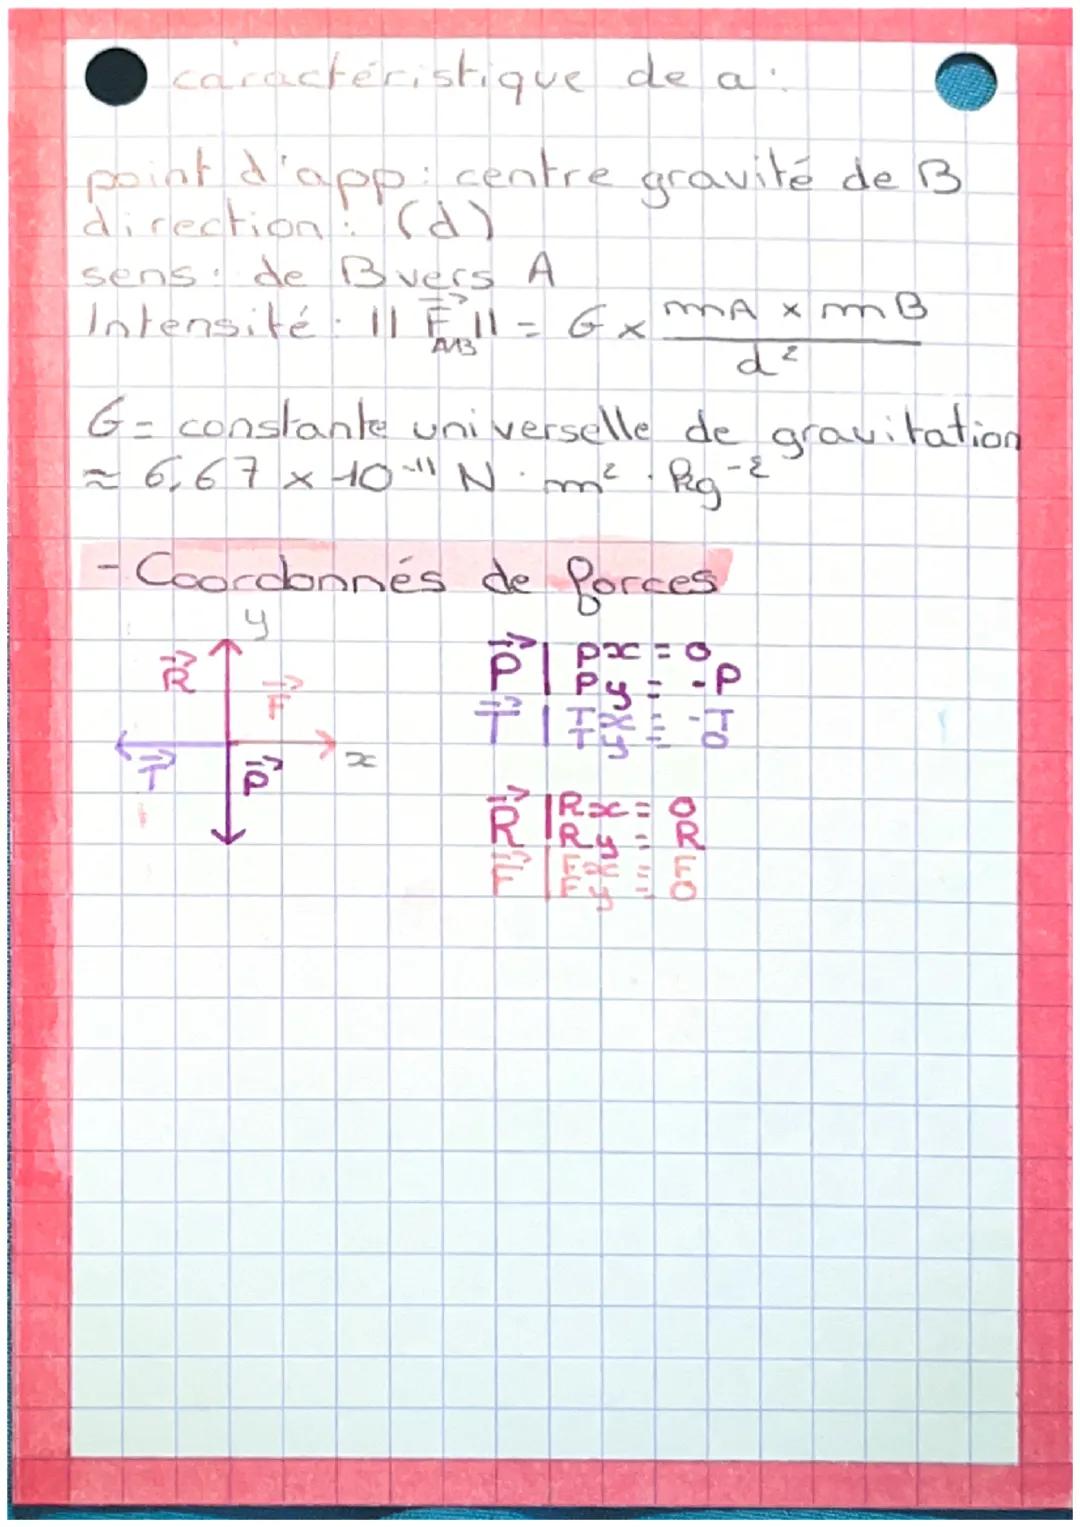 caractéristique de a :
point d'app : centre gravité de B
direction : (d)
sens : de B vers A
Intensité : || F⃗ A/B || = G × mA × mB / d²
G = constante universelle de gravitation
≈ 6,67 × 10⁻¹¹ N · m² · kg⁻²
- Coordonnés de forces
y
R⃗
F⃗
T⃗
P⃗
x
P⃗ | Px = 0
Py = -P
T⃗ | Tx = -T
Ty = 0
R⃗ | Rx = 0
Ry = R
F⃗ | Fx = F
Fy = 0